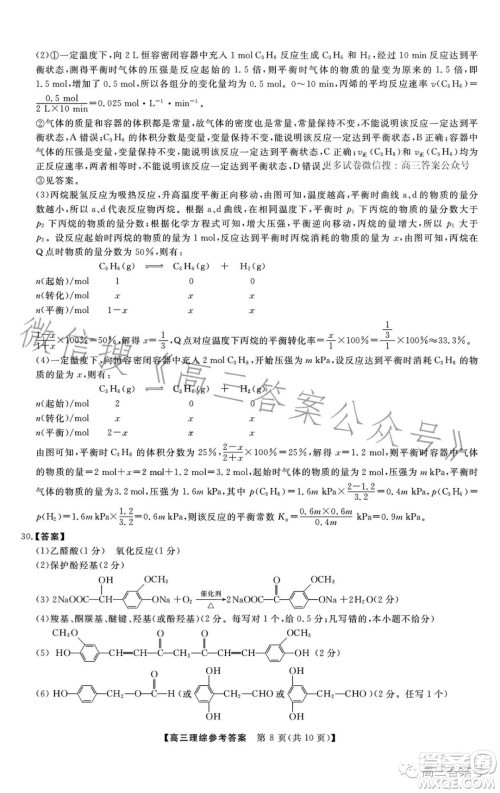 (2)①一定温度下,向 2 L 恒容密闭容器中充入 1 mol C₃H₈ 反应生成 C₃H₆ 和 H₂,经过 10 min 反应达到平
衡状态,测得平衡时气体的压强是反应开始时气体的压强的 1.5 倍,则平衡时气体的物质的量为原来的 1.5 倍,即
1.5 mol,增加了 0.5 mol,所以各组分的变化量均为 0.5 mol。0～10 min,丙烯的平均反应速率 v(C₃H₆)=
0.5 mol/(2 L×10 min)=0.025 mol·L⁻¹·min⁻¹。
②气体的质量和容器的体积都是常量,故气体的密度也是常量,常量保持不变,不能说明反应一定达到平
衡状态,A 错误;C₃H₆ 的体积分数是变量,变量保持不变,能说明反应一定达到平衡状态,B 正确;容器中
气体压强也是变量,变量保持不变,能说明反应一定达到平衡状态,C 正确;
正反应速率,两者相等时,不能说明反应一定达到平衡状态,D 错误。更多试卷微信搜:高三答案公众号
③见答案。
(3)丙烷脱氢反应为吸热反应,升高温度平衡正向移动,由图可知,温度越高,平衡时 a、d 的物质的量分
数越小,所以 a、d 代表反应物丙烷。根据 a、d 曲线,在相同温度下,平衡时 p₁ 下丙烷的物质的量分数大于
p₂ 下丙烷的物质的量分数;根据化学方程式可知,
Q 点时丙烷的物质的量分数为 50%,则有:
C₃H₈(g) ⇌ C₃H₆(g) + H₂(g)
n(起始)/mol 1 0 0
n(转化)/mol x x x
n(平衡)/mol 1−x x x
(1−x)/(1+x)×100%=50%,解得 x=1/3,Q 点对应温度下丙烷的平衡转化率=x/1×100%=(1/3)/1×100%≈33.3%。
(4)一定温度下,向恒容密闭容器中充入 2 mol C₃H₈,开始压强为 m kPa,设平衡时消耗 C₃H₈ 的物
质的量为 x mol,则有:
C₃H₈(g) ⇌ C₃H₆(g) + H₂(g)
n(起始)/mol 2 0 0
n(转化)/mol x x x
n(平衡)/mol 2−x x x
由图可知,平衡时 C₃H₈ 的体积分数为 25%,(2−x)/(2+x)×100%=25%,解得 x=1.2 mol,则平衡时容器中气体
的物质的量=2 mol+x=2 mol+1.2 mol=3.2 mol,开始时气体的压强为 m kPa,平衡时
气体的物质的量为 3.2 mol,压强为 1.6m kPa,其中 p(C₃H₈)=1.6m kPa×(2−1.2)/3.2=0.4m kPa,p(C₃H₆)=
p(H₂)=1.6m kPa×1.2/3.2=0.6m kPa,则该反应的平衡常数 Kₚ=(0.6m×0.6m)/0.4m kPa=0.9m kPa。
30.【答案】
(1)乙醛酸(1 分) 氧化反应(1 分)
(2)保护酚羟基(2 分)
(3) 2NaOOC OH OCH₃ ONa +O₂ 催化剂 △ 2NaOOC O OCH₃ ONa +2H₂O(2 分)
(4)羧基、酮羰基、醚键、羟基(或酚羟基)(2 分。每写对 1 个,给 0.5 分;凡写错的,本小题不给分)
(5) CH₃O HO CH=CH O O CH=CH OCH₃ OH (2 分)
(6) HO CH₂—O—C—H O (或 OH CH₂—CHO OH 或 OH CH₂—CHO OH )(2 分。任写 1 个)
【高三理综参考答案 第 8 页(共 10 页)】
微信搜《高三答案公众号》